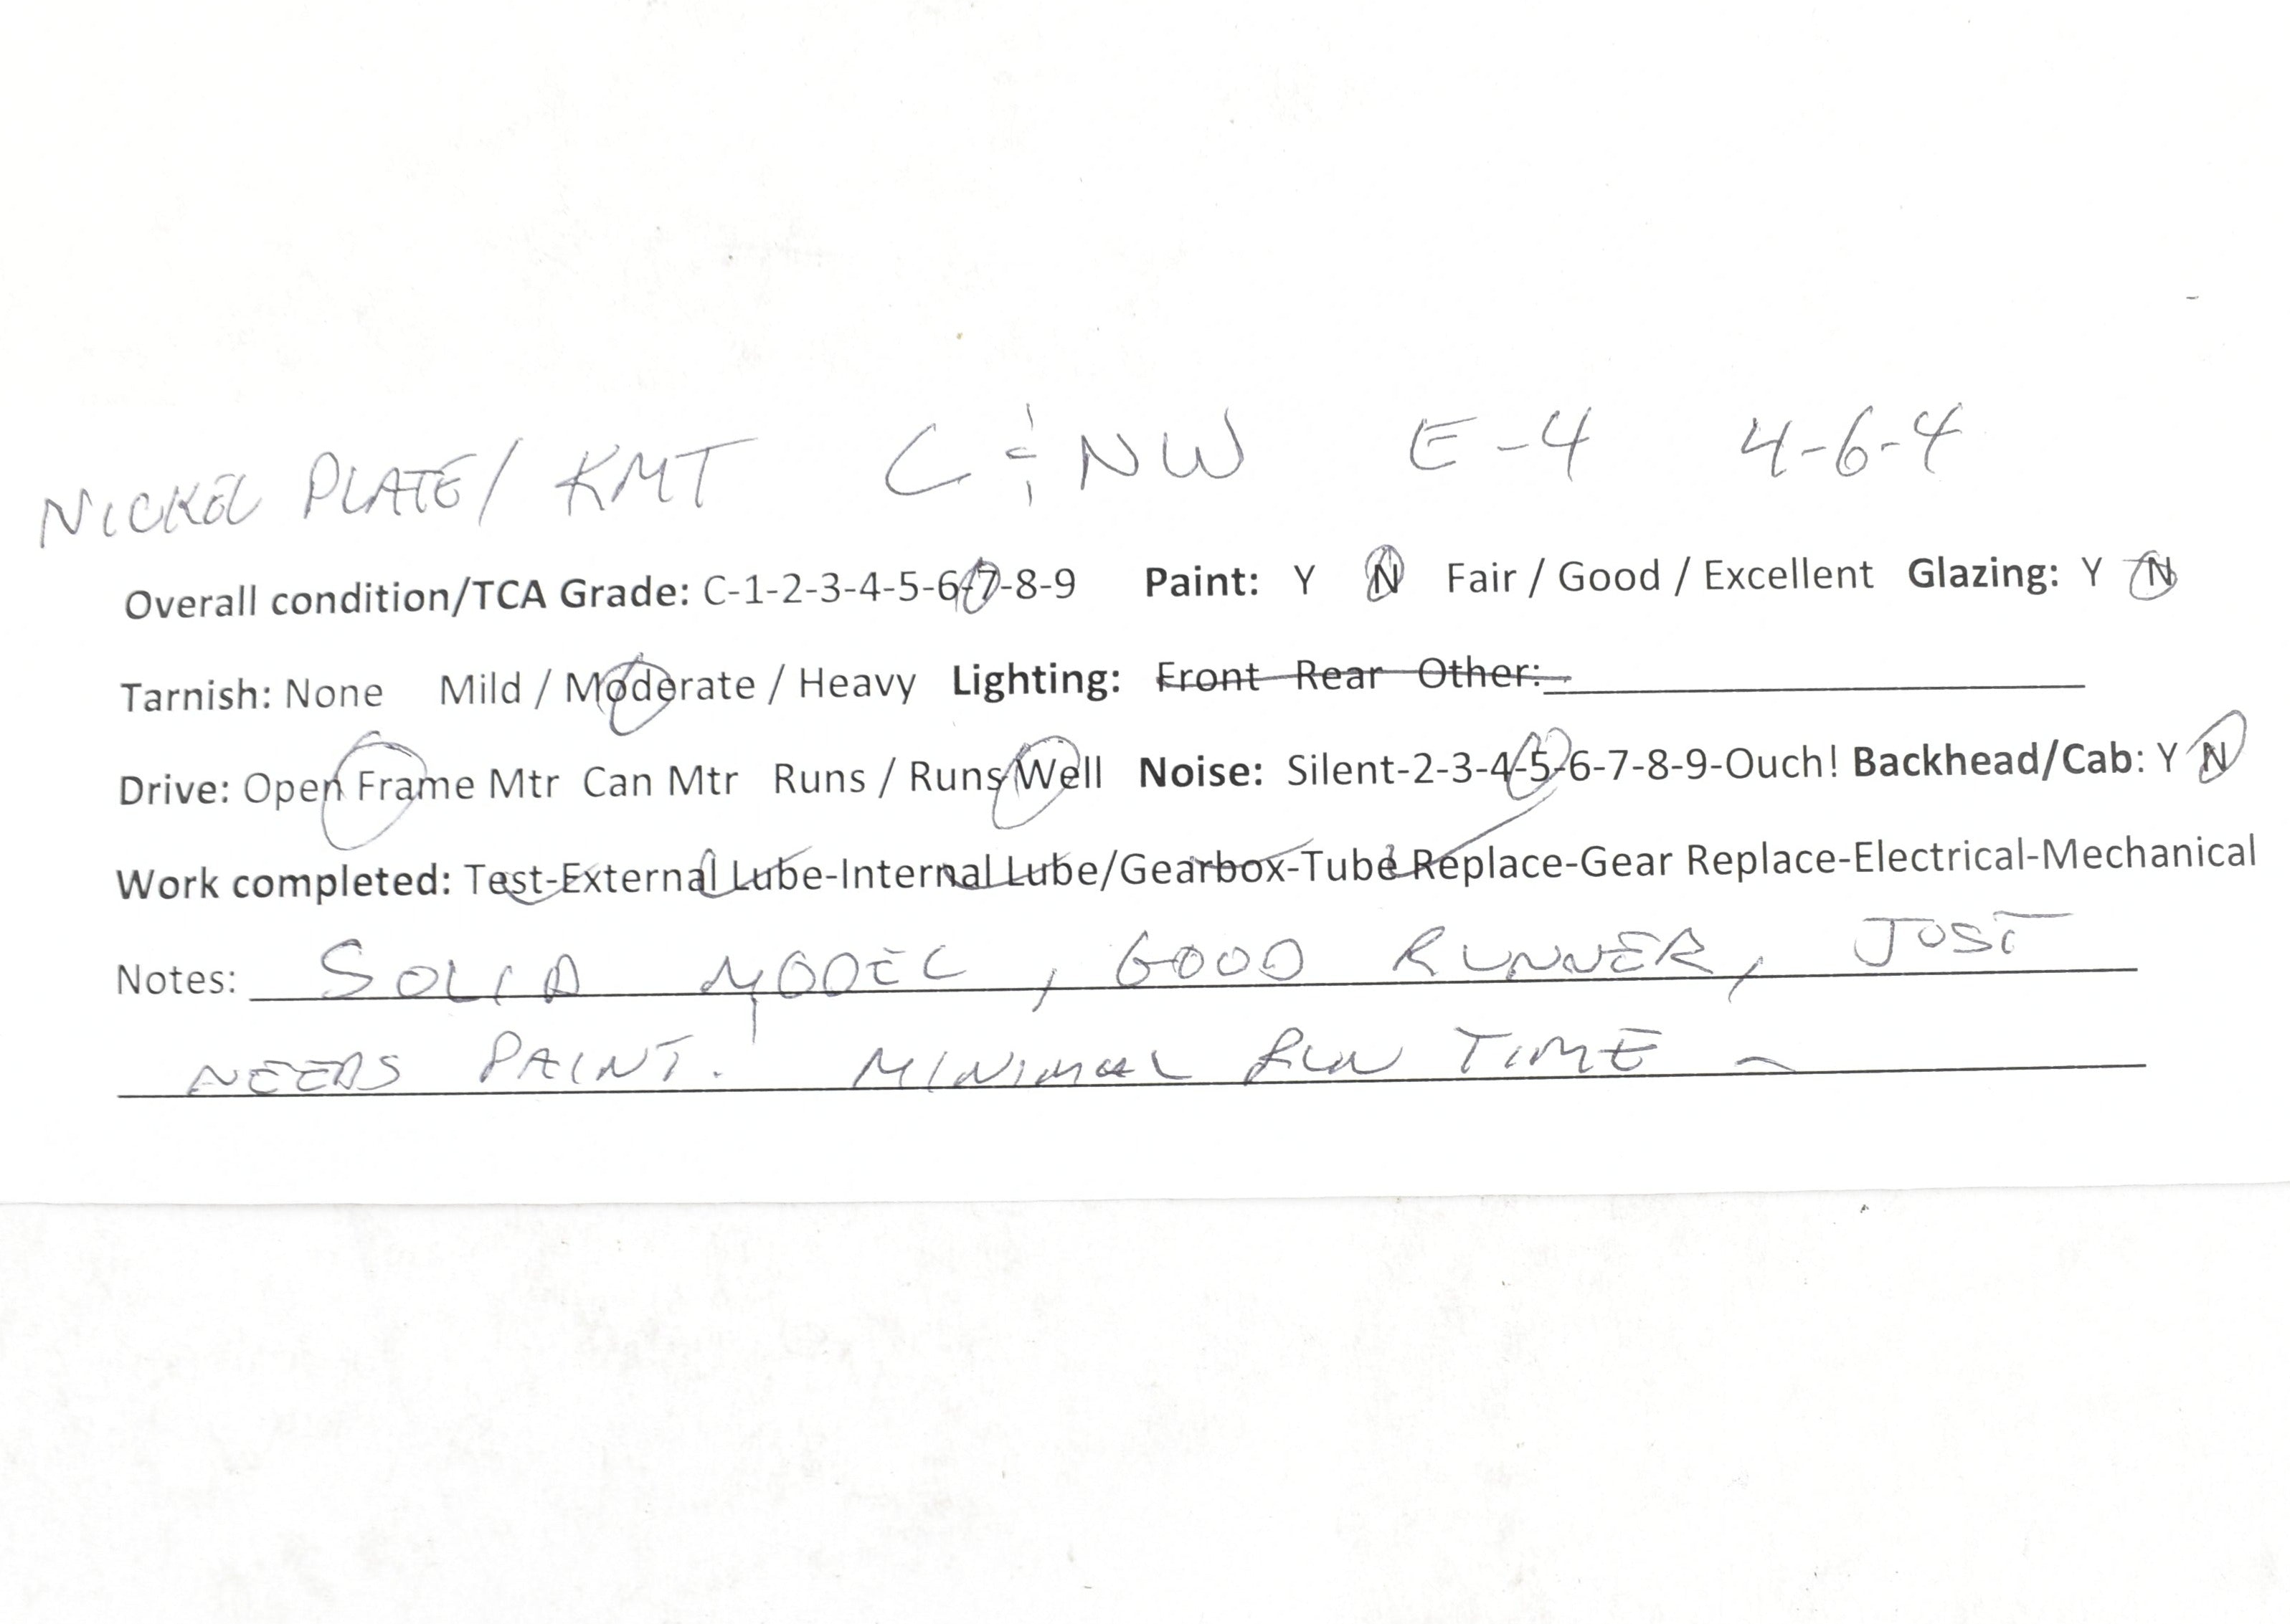 NICKEL PLATE/ KMT C & NW E-4 4-6-4
Overall condition/TCA Grade: C-1-2-3-4-5-6-7-8-9 Paint: Y N Fair / Good / Excellent Glazing: Y N
Tarnish: None Mild / Moderate / Heavy Lighting: Front Rear Other:
Drive: Open Frame Mtr Can Mtr Runs / Runs Well Noise: Silent-2-3-4-5-6-7-8-9-Ouch! Backhead/Cab: Y N
Work completed: Test-External Lube-Internal Lube/Gearbox-Tube Replace-Gear Replace-Electrical-Mechanical
Notes: SOLID MODEL, GOOD RUNNER, JUST
NEEDS PAINT. MINIMAL RUN TIME ~